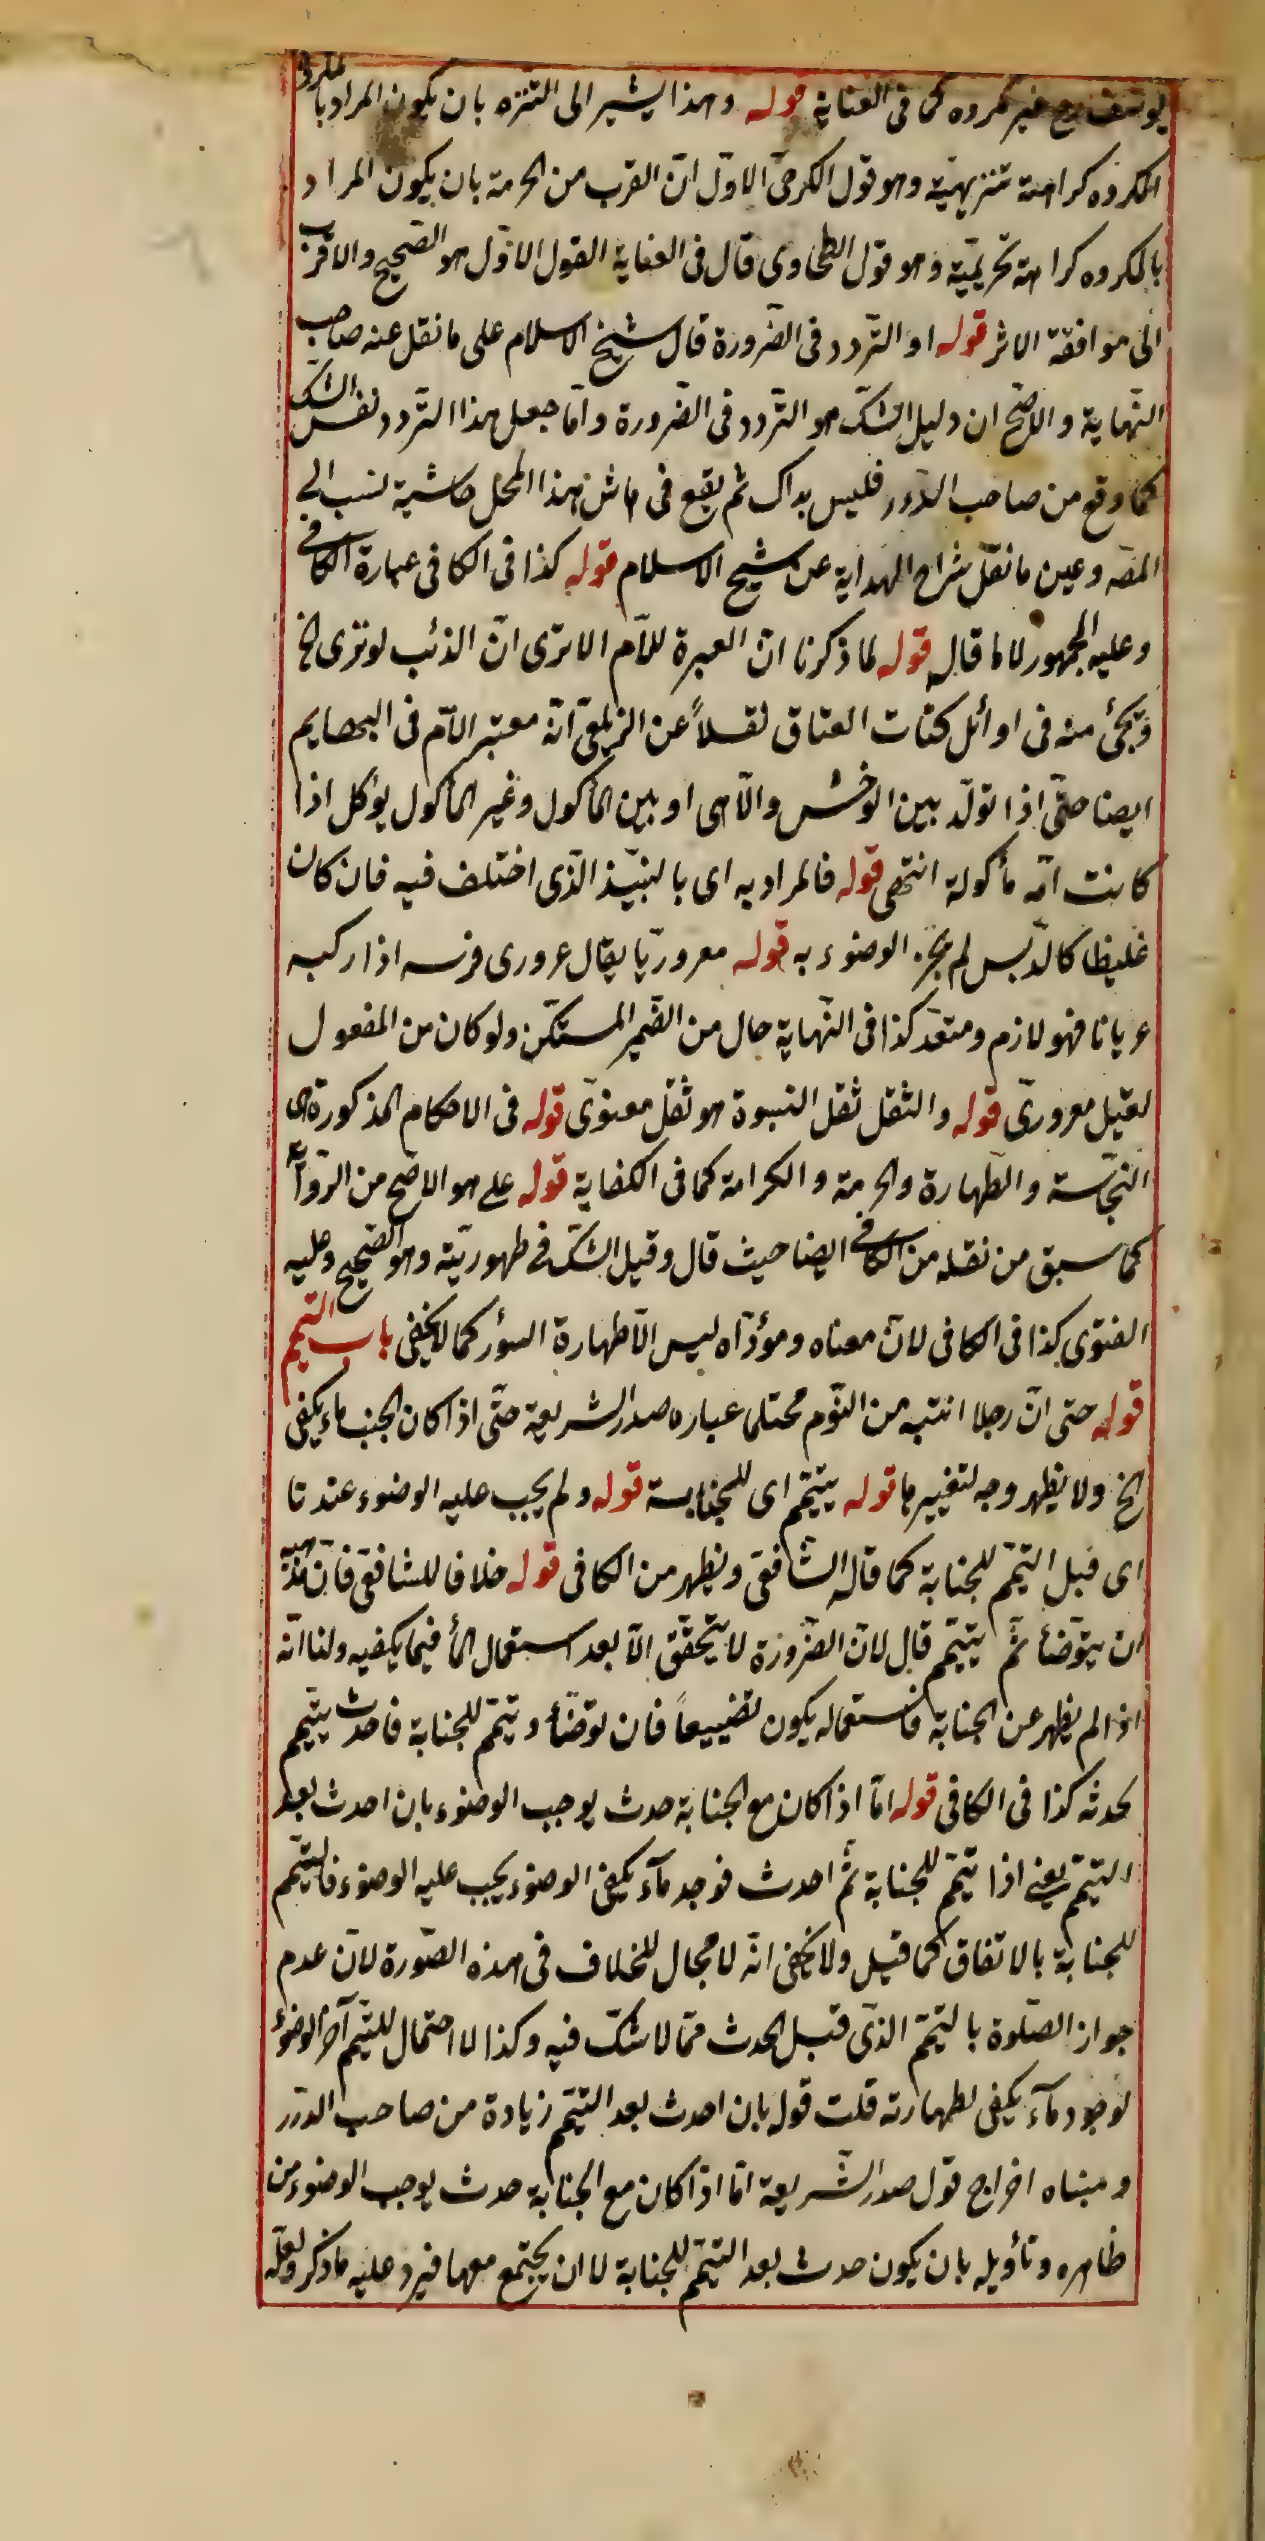 يوسف رح غير مكروه كما فى العناية قوله وهذا يشير الى التنزه بان يكون المراد بالمكروه
المكروه كراهة تنزيهية وهو قول الكرخى الاول ان القرب من الحرمة بان يكون المراد
بالمكروه كراهة تحريمية وهو قول الطحاوى قال فى العناية القول الاول هو الصحيح والاقرب
الى موافقة الاثر قوله او التردد فى الضرورة قال شيخ الاسلام على ما نقل عنه صاحب
النهاية والاصح ان دليل الشك هو التردد فى الضرورة واما جعل هذا التردد نفس الشك
كما وقع من صاحب الدرر فليس بذاك ثم يقع فى هامش هذا المحل حاشية نسب الى
المصه وعين ما نقل شراح الهداية عن شيخ الاسلام قوله كذا فى الكافى عبارة الكافى
وعليه الجمهور لا ما قال قوله لما ذكرنا ان العبرة للام الا ترى ان الذئب لو نزى الخ
ويجئ منه فى اوائل كتاب العتاق نقلاً عن الزيلعى انه معتبر الام فى البهايم
ايضا حتى اذا تولد بين الوحش والاهلى او بين المأكول وغير المأكول يؤكل اذا
كانت امه مأكولة انتهى قوله فالمراد به اى بالنبيذ الذى اختلف فيه فان كان
غليظا كالدبس لم يجز الوضوء به قوله معروريا يقال عرورى فرسه اذا ركبه
عريانا فهو لازم ومتعد كذا فى النهاية حال من الضمير المستكن ولو كان من المفعول
لقيل معرورى قوله والثقل ثقل النبوة هو ثقل معنوى قوله فى الاحكام المذكورة اى
النجاسة والطهارة والحرمة والكرامة كما فى الكفاية قوله على هو الاصح من الروآية
كما سبق من نقله من الكافى ايضا حيث قال وقيل الشك فى طهوريته وهو الصحيح وعليه
الفتوى كذا فى الكافى لان معناه ومؤداه ليس الا طهارة السؤر كما لا يخفى باب التيمم
قوله حتى ان رجلا انتبه من النوم محتلما عباره صدر الشريعة حتى اذا كان للجنب ماء يكفى
الخ ولا يظهر وجه لتغييرها قوله يتيمم اى للجنابة قوله ولم يجب عليه الوضوء عندنا
اى قبل التيمم للجنابة كما قاله الشافعى ويظهر من الكافى قوله خلافا للشافعى فان مذهبه
ان يتوضأ ثم يتيمم قال لان الضرورة لا يتحقق الا بعد استعمال الماء فيما يكفيه ولنا انه
اذا لم يطهر عن الجنابة فاستعماله يكون تضييعاً فان توضأ وتيمم للجنابة فاحدث يتيمم
لحدثه كذا فى الكافى قوله اما اذا كان مع الجنابة حدث يوجب الوضوء بان احدث بعد
التيمم يعنى اذا تيمم للجنابة ثم احدث فوجد مآء يكفى الوضوء يجب عليه الوضوء فالتيمم
للجنابة بالاتفاق كما قيل ولا يخفى انه لا مجال للخلاف فى هذه الصورة لان عدم
جواز الصلوة بالتيمم الذى قبل الحدث مما لا شك فيه وكذا لا احتمال للتيمم آخر الوضوء
لوجود مآء يكفى لطهارته قلت قول بان احدث بعد التيمم زيادة من صاحب الدرر
ومبناه اخراج قول صدر الشريعة اما اذا كان مع الجنابة حدث يوجب الوضوء من
ظاهره وتأويله بان يكون حدث بعد التيمم للجنابة لا ان يجتمع معها فيرد عليه ما ذكر ولعله